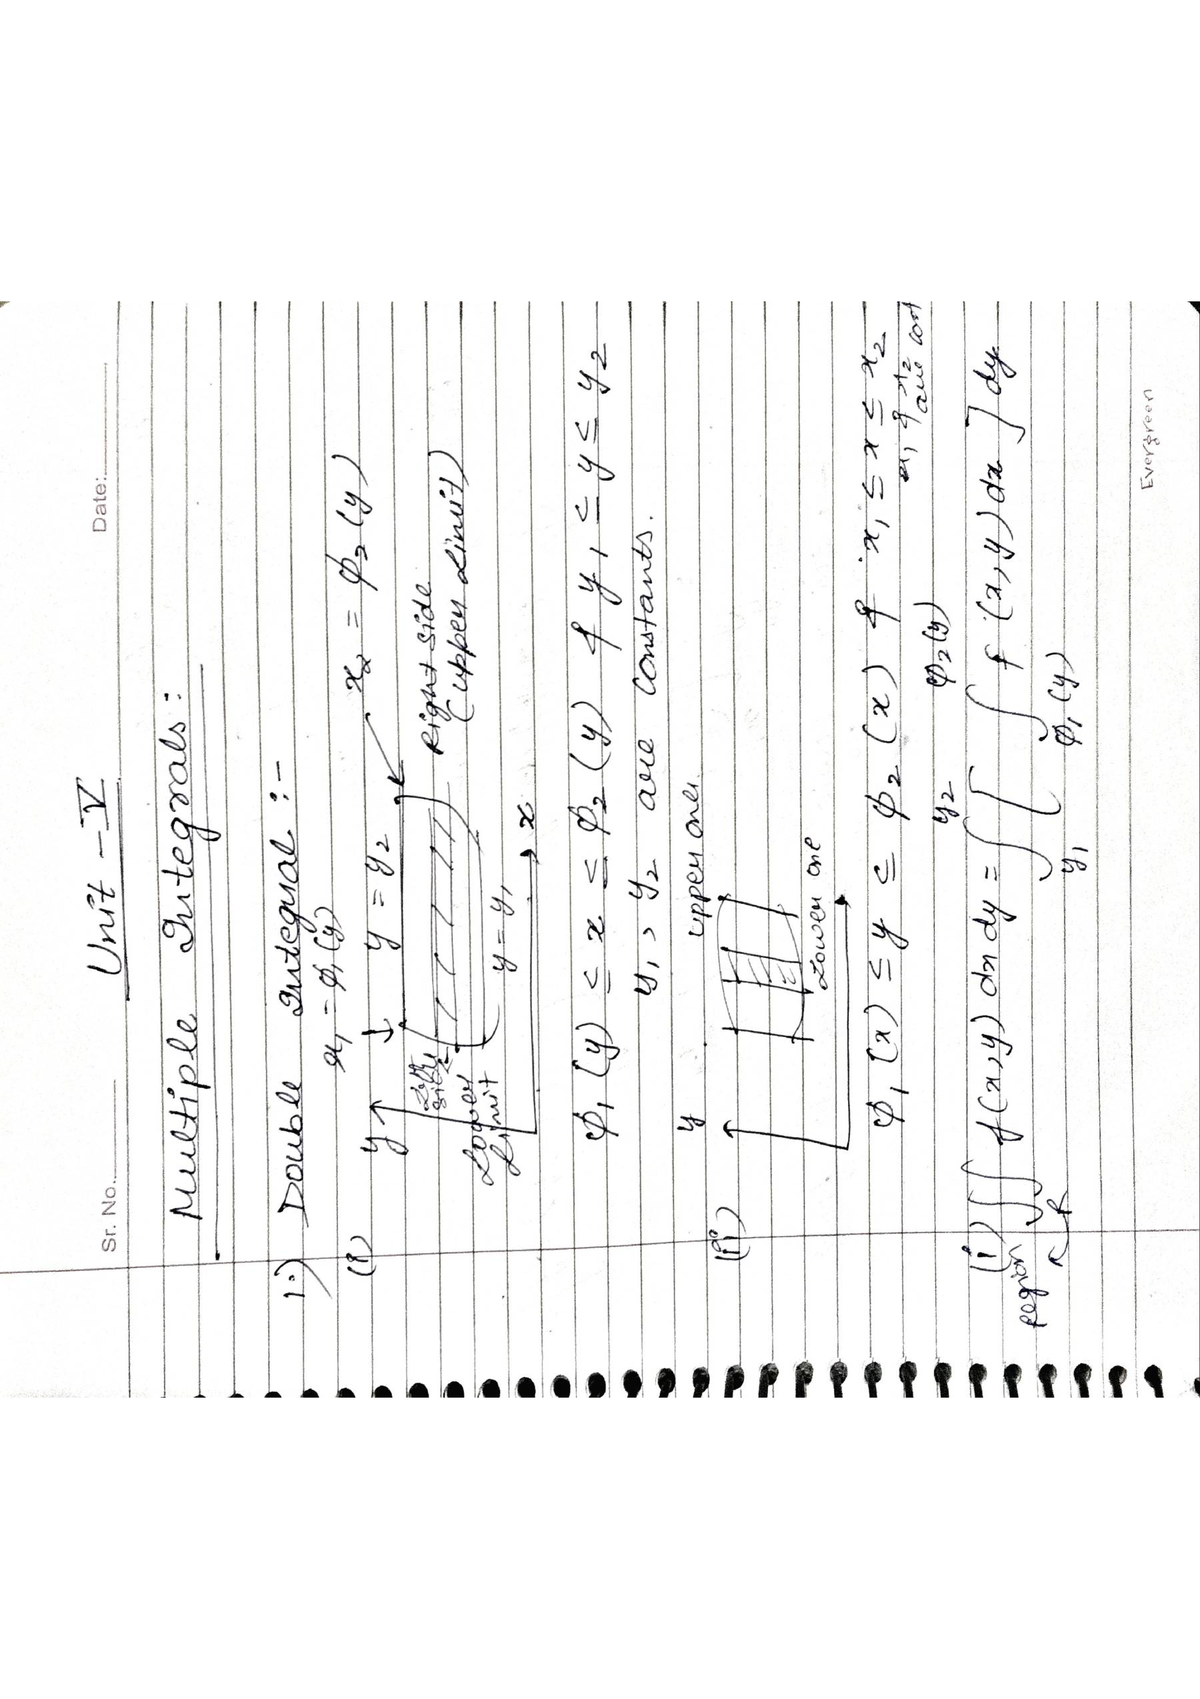 Sr. No. Date:
Unit - V
Multiple Integrals:
1.) Double Integral :-
x₁ = φ₁(y)
(i) y y = y₂ x₂ = φ₂(y)
Left side Right side
Lower Limit (upper Limit)
y = y₁
x
φ₁(y) ≤ x ≤ φ₂(y) & y₁ ≤ y ≤ y₂
y₁, y₂ are constants.
y upper one
(ii)
Lower one
φ₁(x) ≤ y ≤ φ₂(x) & x₁ ≤ x ≤ x₂
x₁ & x₂ are const
(i) ∬ f(x,y) dx dy = ∫_{y₁}^{y₂} [ ∫_{φ₁(y)}^{φ₂(y)} f(x,y) dx ] dy
region R
Evergreen